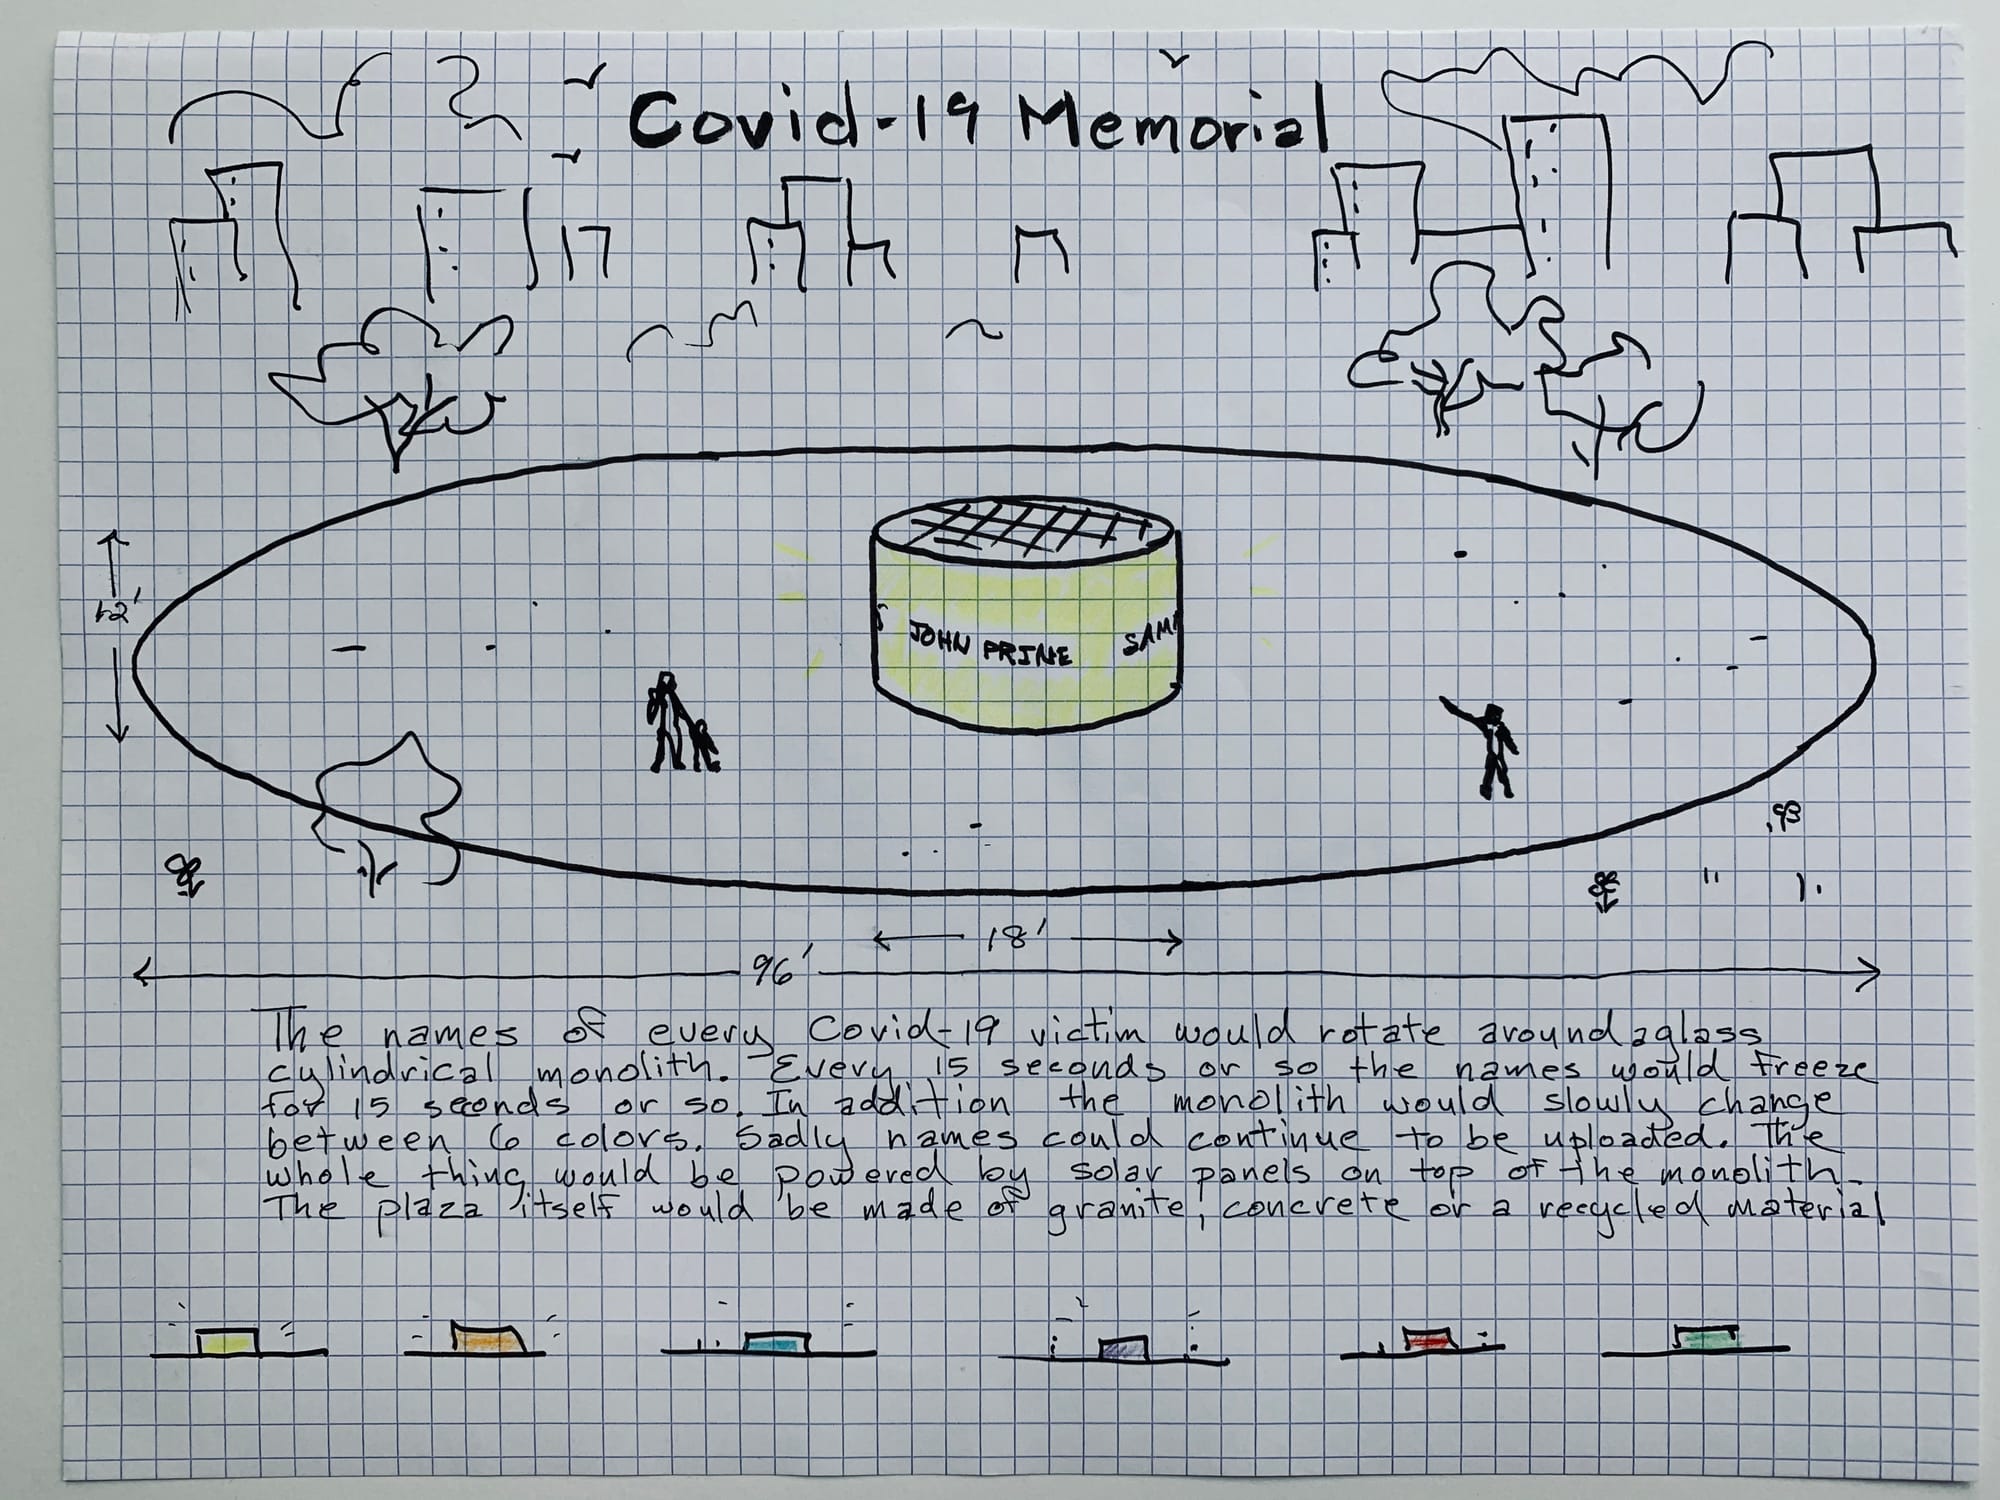 Covid-19 Memorial
12'
JOHN PRINE SAM
18'
96'
The names of every Covid-19 victim would rotate around a glass
cylindrical monolith. Every 15 seconds or so the names would freeze
for 15 seconds or so. In addition the monolith would slowly change
between 6 colors. Sadly names could continue to be uploaded. The
whole thing would be powered by solar panels on top of the monolith.
The plaza itself would be made of granite, concrete or a recycled material